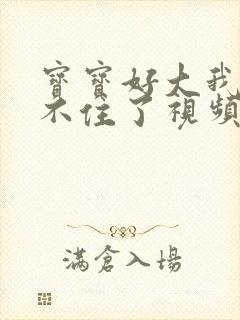 寶寶好大我
不住了視頻
滿倉入場